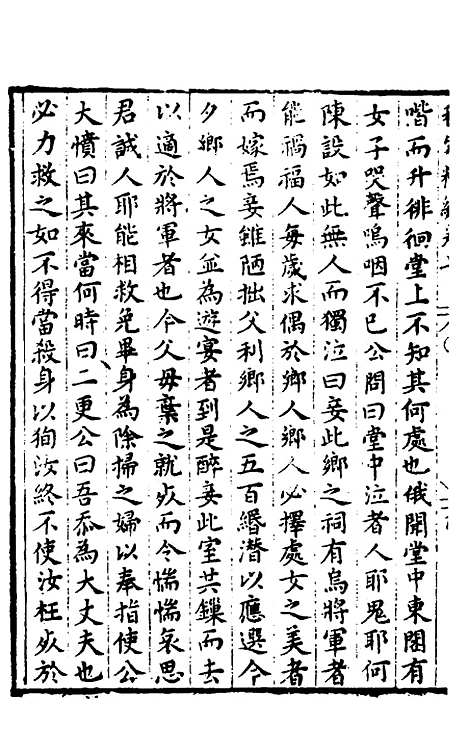 階而升徘徊堂上不知其何處也俄聞堂中東閣有
女子哭聲嗚咽不已公問曰堂中泣者人耶鬼耶何
陳設如此無人而獨泣曰妾此鄉之祠有烏將軍者
能禍福人每歲求偶於鄉人鄉人必擇處女之美者
而嫁焉妾雖陋拙父利鄉人之五百緡潛以應選今
夕鄉人之女並為遊宴者到是醉妾此室共鏁而去
以適於將軍者也今父母棄之就死而今惴惴哀思
君誠人耶能相救免畢身為除掃之婦以奉指使公
大憤曰其來當何時曰二更公曰吾忝為大丈夫也
必力救之如不得當殺身以狥汝終不使汝枉死於